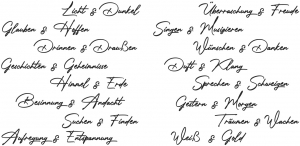 Licht & Dunkel
Glauben & Hoffen
Drinnen & Draußen
Geschichten & Geheimnisse
Himmel & Erde
Besinnung & Andacht
Suchen & Finden
Aufregung & Entspannung
Überraschung & Freude
Singen & Musizieren
Wünschen & Danken
Duft & Klang
Sprechen & Schweigen
Gestern & Morgen
Träumen & Wachen
Weiß & Gold